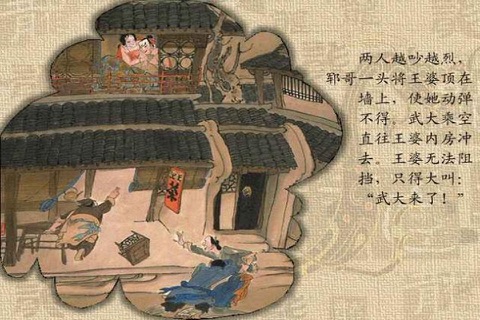 两人越吵越烈，
郓哥一头将王婆顶在
墙上，使她动弹
不得。武大乘空
直往王婆内房冲
去。王婆无法阻
挡，只得大叫：
“武大来了！”